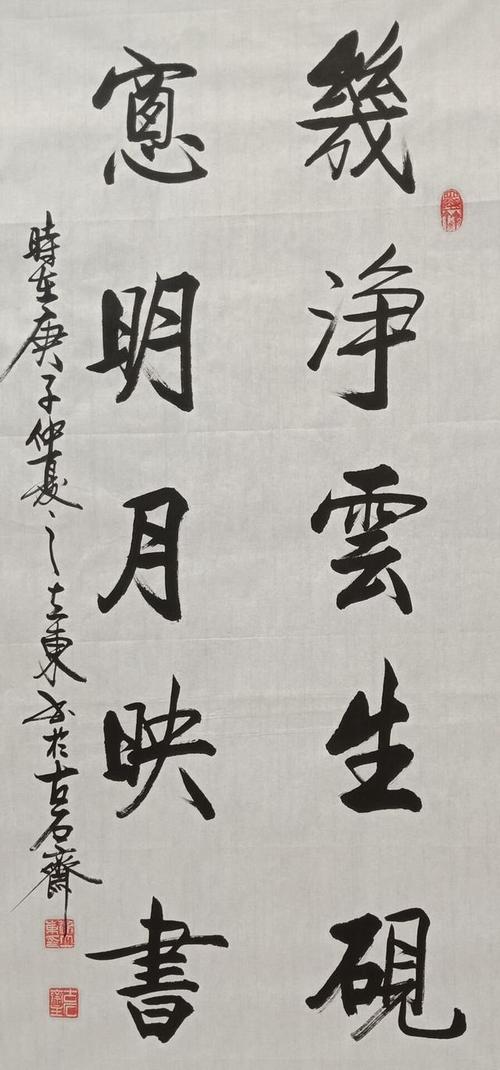 幾淨雲生硯
窻明月映書
時在庚子仲夏之志東書於古石齋